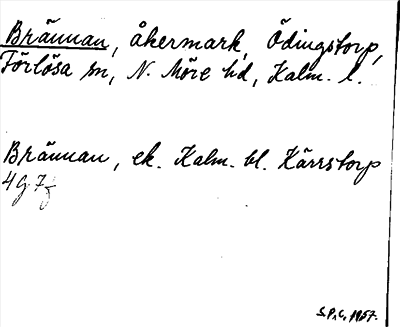 Brännan, åkermark, Ödingstorp,
Förlösa sn, N. Möre hd, Kalm. l.
Brännan, ek. Kalm. bl. Kärrstorp
4G 7f
S.P.C. 1957.